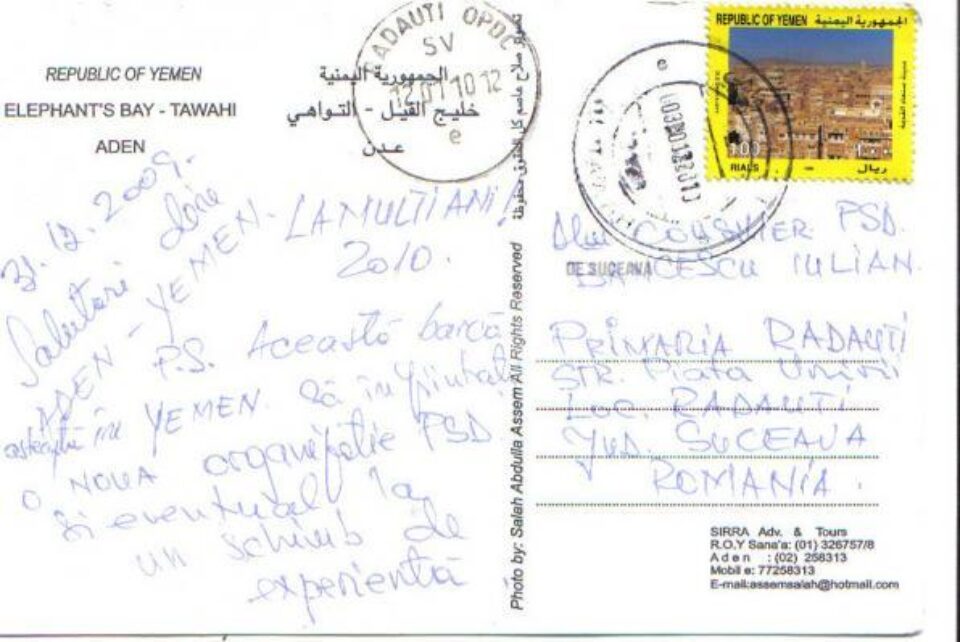 REPUBLIC OF YEMEN
ELEPHANT'S BAY - TAWAHI
ADEN
الجمهورية اليمنية
خليج الفيل - التواهي
عدن
RADAUTI OPDC
SV
12.01.10 12
e
REPUBLIC OF YEMEN الجمهورية اليمنية
مدينة صنعاء القديمة
100
RIALS
ريال
e
31.12.2009.
Salutari din
ADEN - YEMEN. LA MULTI ANI!
2010.
P.S. Această barcă
așteaptă în YEMEN. Să în
O NOUA organizatie PSD
Si eventual la
un schimb de
experientă
تصوير صلاح عاصم كل الحقوق محفوظة
Photo by: Salah Abdulla Assem All Rights Reserved
COUSILIER PSD.
DE SUCEAVA
IULIAN.
PRIMARIA RADAUTI
STR. Piata Unirii
Loc. RADAUTI
Jud. SUCEAVA
ROMANIA.
SIRRA Adv. & Tours
R.O.Y Sana'a: (01) 326757/8
Aden : (02) 258313
Mobile: 77258313
E-mail:assemsalah@hotmail.com